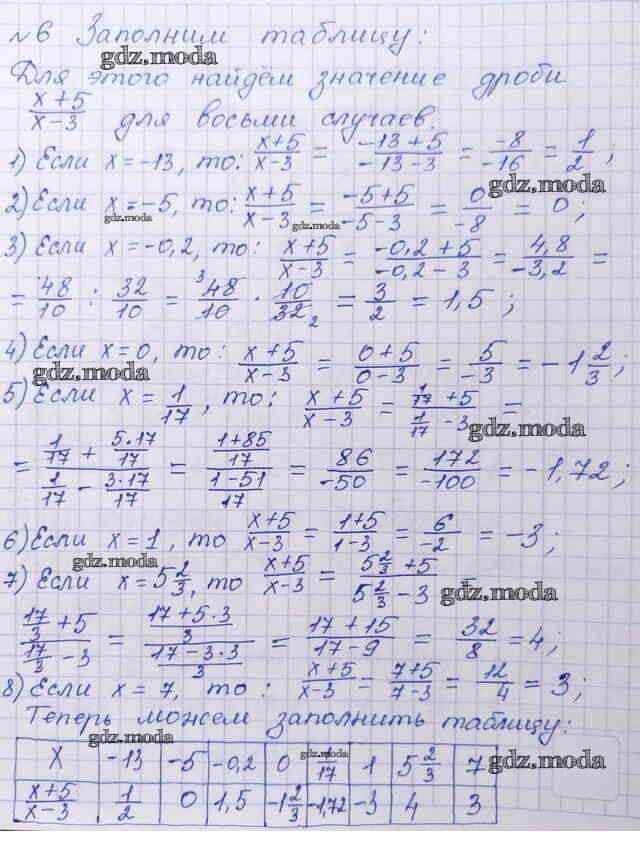 №6 Заполним таблицу:
gdz.moda
Для этого найдём значение дроби
(x+5)/(x-3) для восьми случаев.
1) Если x=-13, то: (x+5)/(x-3) = (-13+5)/(-13-3) = (-8)/(-16) = 1/2;
gdz.moda
2) Если x=-5, то: (x+5)/(x-3) = (-5+5)/(-5-3) = 0/(-8) = 0;
gdz.moda gdz.moda
3) Если x=-0,2, то: (x+5)/(x-3) = (-0,2+5)/(-0,2-3) = 4,8/(-3,2) =
= 48/10 : 32/10 = 48/10 · 10/32 = 3/2 = 1,5;
4) Если x=0, то: (x+5)/(x-3) = (0+5)/(0-3) = 5/(-3) = -1 2/3;
gdz.moda
5) Если x=1/17, то: (x+5)/(x-3) = (1/17+5)/(1/17-3) =
gdz.moda
= (1/17 + 5·17/17)/(1/17 - 3·17/17) = ((1+85)/17)/((1-51)/17) = 86/(-50) = 172/(-100) = -1,72;
6) Если x=1, то (x+5)/(x-3) = (1+5)/(1-3) = 6/(-2) = -3;
gdz.moda
7) Если x=5 2/3, то (x+5)/(x-3) = (5 2/3+5)/(5 2/3-3) =
gdz.moda
(17/3+5)/(17/3-3) = ((17+5·3)/3)/((17-3·3)/3) = (17+15)/(17-9) = 32/8 = 4;
8) Если x=7, то: (x+5)/(x-3) = (7+5)/(7-3) = 12/4 = 3;
Теперь можем заполнить таблицу:
gdz.moda
x -13 -5 -0,2 0 1/17 1 5 2/3 7
gdz.moda gdz.moda
(x+5)/(x-3) 1/2 0 1,5 -1 2/3 -1,72 -3 4 3